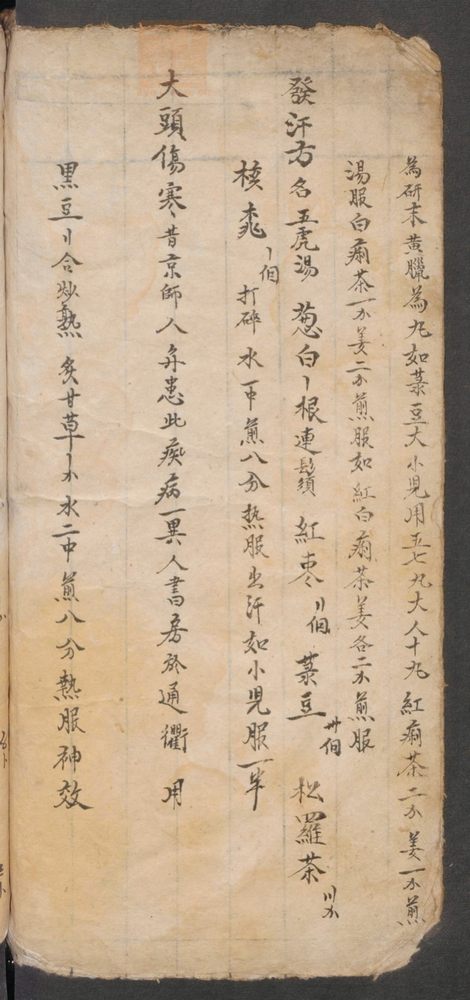 為研末黄臘為丸如菉豆大小児用五七丸大人十丸 紅痢茶二个 姜一个煎
湯服白痢茶一个姜二个煎服如紅白痢茶姜各二个煎服
發汗方 名五虎湯 葱白〡根連鬚 紅枣〢個 菉豆卅個 松羅茶〣个
核桃〡個 打碎 水一中煎八分热服出汗如小児服一半
大頭傷寒昔京師人多患此瘓病一異人書方於通衢 用
黒豆〢合炒熟 炙甘草〡个水二中煎八分熱服神效